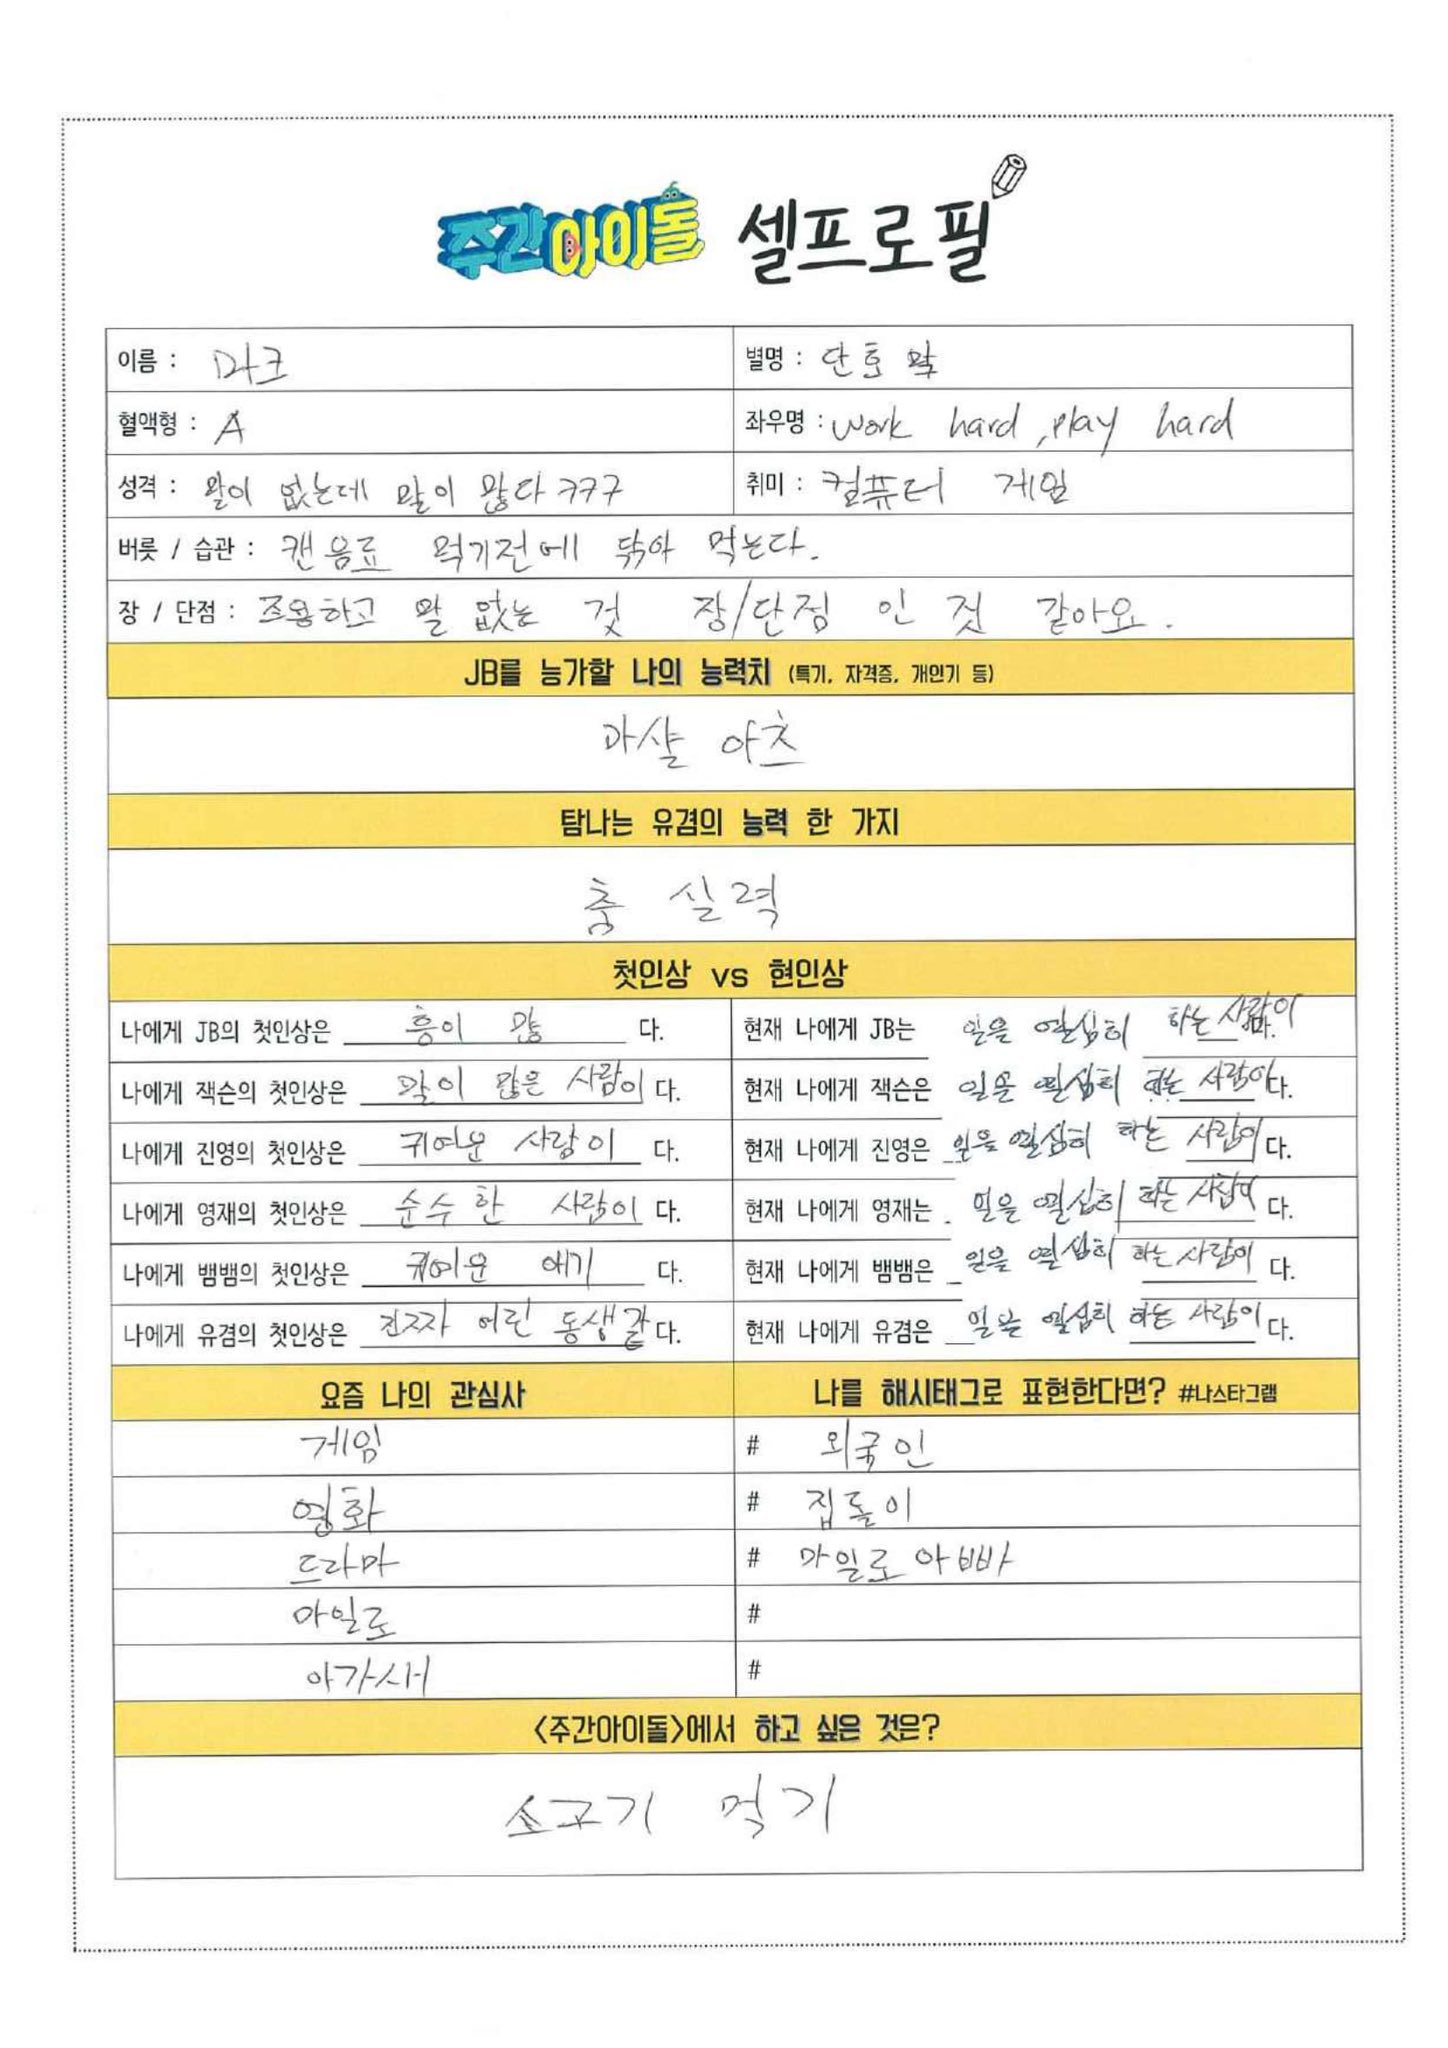 주간아이돌 셀프로필
이름 : 마크 별명 : 단호막
혈액형 : A 좌우명 : work hard, play hard
성격 : 말이 없는데 말이 많다 ㅋㅋㅋ 취미 : 컴퓨터 게임
버릇 / 습관 : 캔 음료 먹기전에 닦아 먹는다.
장 / 단점 : 조용하고 말 없는 것 장/단점 인 것 같아요.
JB를 능가할 나의 능력치 (특기, 자격증, 개인기 등)
마샬 아츠
탐나는 유겸의 능력 한 가지
춤 실력
첫인상 vs 현인상
나에게 JB의 첫인상은 흥이 많 다. 현재 나에게 JB는 일을 열심히 하는 사람이 다.
나에게 잭슨의 첫인상은 말이 많은 사람이 다. 현재 나에게 잭슨은 일을 열심히 하는 사람이 다.
나에게 진영의 첫인상은 귀여운 사람이 다. 현재 나에게 진영은 일을 열심히 하는 사람이 다.
나에게 영재의 첫인상은 순수한 사람이 다. 현재 나에게 영재는 일을 열심히 하는 사람이 다.
나에게 뱀뱀의 첫인상은 귀여운 애기 다. 현재 나에게 뱀뱀은 일을 열심히 하는 사람이 다.
나에게 유겸의 첫인상은 진짜 어린 동생같 다. 현재 나에게 유겸은 일을 열심히 하는 사람이 다.
요즘 나의 관심사 나를 해시태그로 표현한다면? #나스타그램
게임 # 외국인
영화 # 집돌이
드라마 # 마일로 아빠
마일로 #
아가새 #
<주간아이돌>에서 하고 싶은 것은?
소고기 먹기